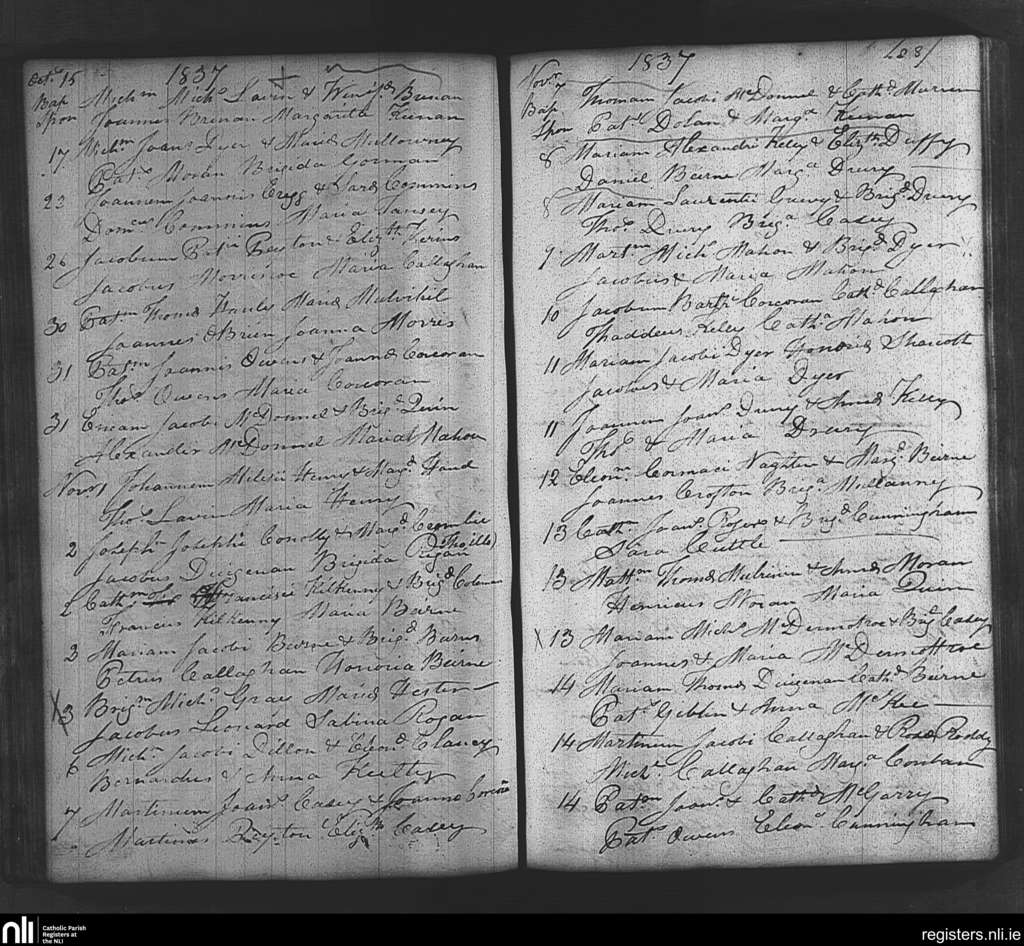 Octr 15 1837
Bap Michm Michs Lavin & Winifd Brenan
Spon Joannes Brenan Margarita Keenan
17 Michm Joans Dyer & Maria Mullowney
Pats Moran Brigida Gorman
23 Joannem Joannis Cregg & Sara Commins
Domcus Commins Maria Tansey
26 Jacobum Pati Peyton & Elizth Kerins
Jacobus Morrisroe Maria Callaghan
30 Patm Thoms Hanley Maria Mulvihil
Joannes O Brien Joanna Morris
31 Patm Joannis Owens & Joanna Corcoran
Thos Owens Maria Corcoran
31 Jacobi McDonnel & Brigd Quin
Alexander McDonnel Maria Mahon
Novr 1 Johannem Milesii Henry & Margt Hand
Thos Lavin Maria Henry
2 Josephm Josephi Conolly & Margt Cromlie
Jacobus Duigenan Brigida
2 Cathm Francisci Kilkenny & Brigd
Francis Kilkenny Maria Barne
3 Mariam Jacobi Burne & Brigd Burns
Petrus Callaghan Honoria Beirne
X 3 Brigm Michs Gray Maria Hester
Jacobus Leonard Sabina Rogan
6 Michl Jacobi Dillon & Eleond Clancy
Bernardus & Anna Keilty
7 Martinum Joans Casey & Joanna Corcoran
Martinus Peyton Elizth Casey
1837
Novr 7
Bap Thomam Jacobi McDonnel & Cathd Murren
Spon Pats Dolan & Marga Keenan
8 Mariam Alexandri Keley & Elizth Duffy
Daniel Beirne Marga Drury
8 Mariam Laurentii & Brigd Drury
Thos Drury Briga Casey
9 Martm Mich Mahon & Brigd Dyer
Jacobus & Maria Mahon
10 Jacobum Bartr Corcoran Cathd Callaghan
Thaddeus Keley Catha Mahon
11 Mariam Jacobi Dyer Honoria Sharcott
Jacobus & Maria Dyer
11 Joannem Joans Drury & Anna Kelly
Thos & Maria Drury
12 Eleonm Cormaci Naghten & Margt Beirne
Joannes Crofton Briga Mullanny
13 Cathm Joans Rogers & Brigd Cunningham
Sara Cuttle
13 Mattm Thoms Mulrenin & Anna Moran
Henricus Moran Maria Quinn
X 13 Mariam Michs McDermotroe & Brigd Casey
Joannes & Maria McDermottroe
14 Mariam Thoms Duigenan Cathd Beirne
Pats Geblin & Anna McKee
14 Martinum Jacobi Callaghan & Rosa Roddy
Michl Callaghan Marga Conlan
14 Patm Joans & Cathd McGarry
Pats Owens Eleona Cunningham
nli Catholic Parish
Registers at
the NLI
registers.nli.ie